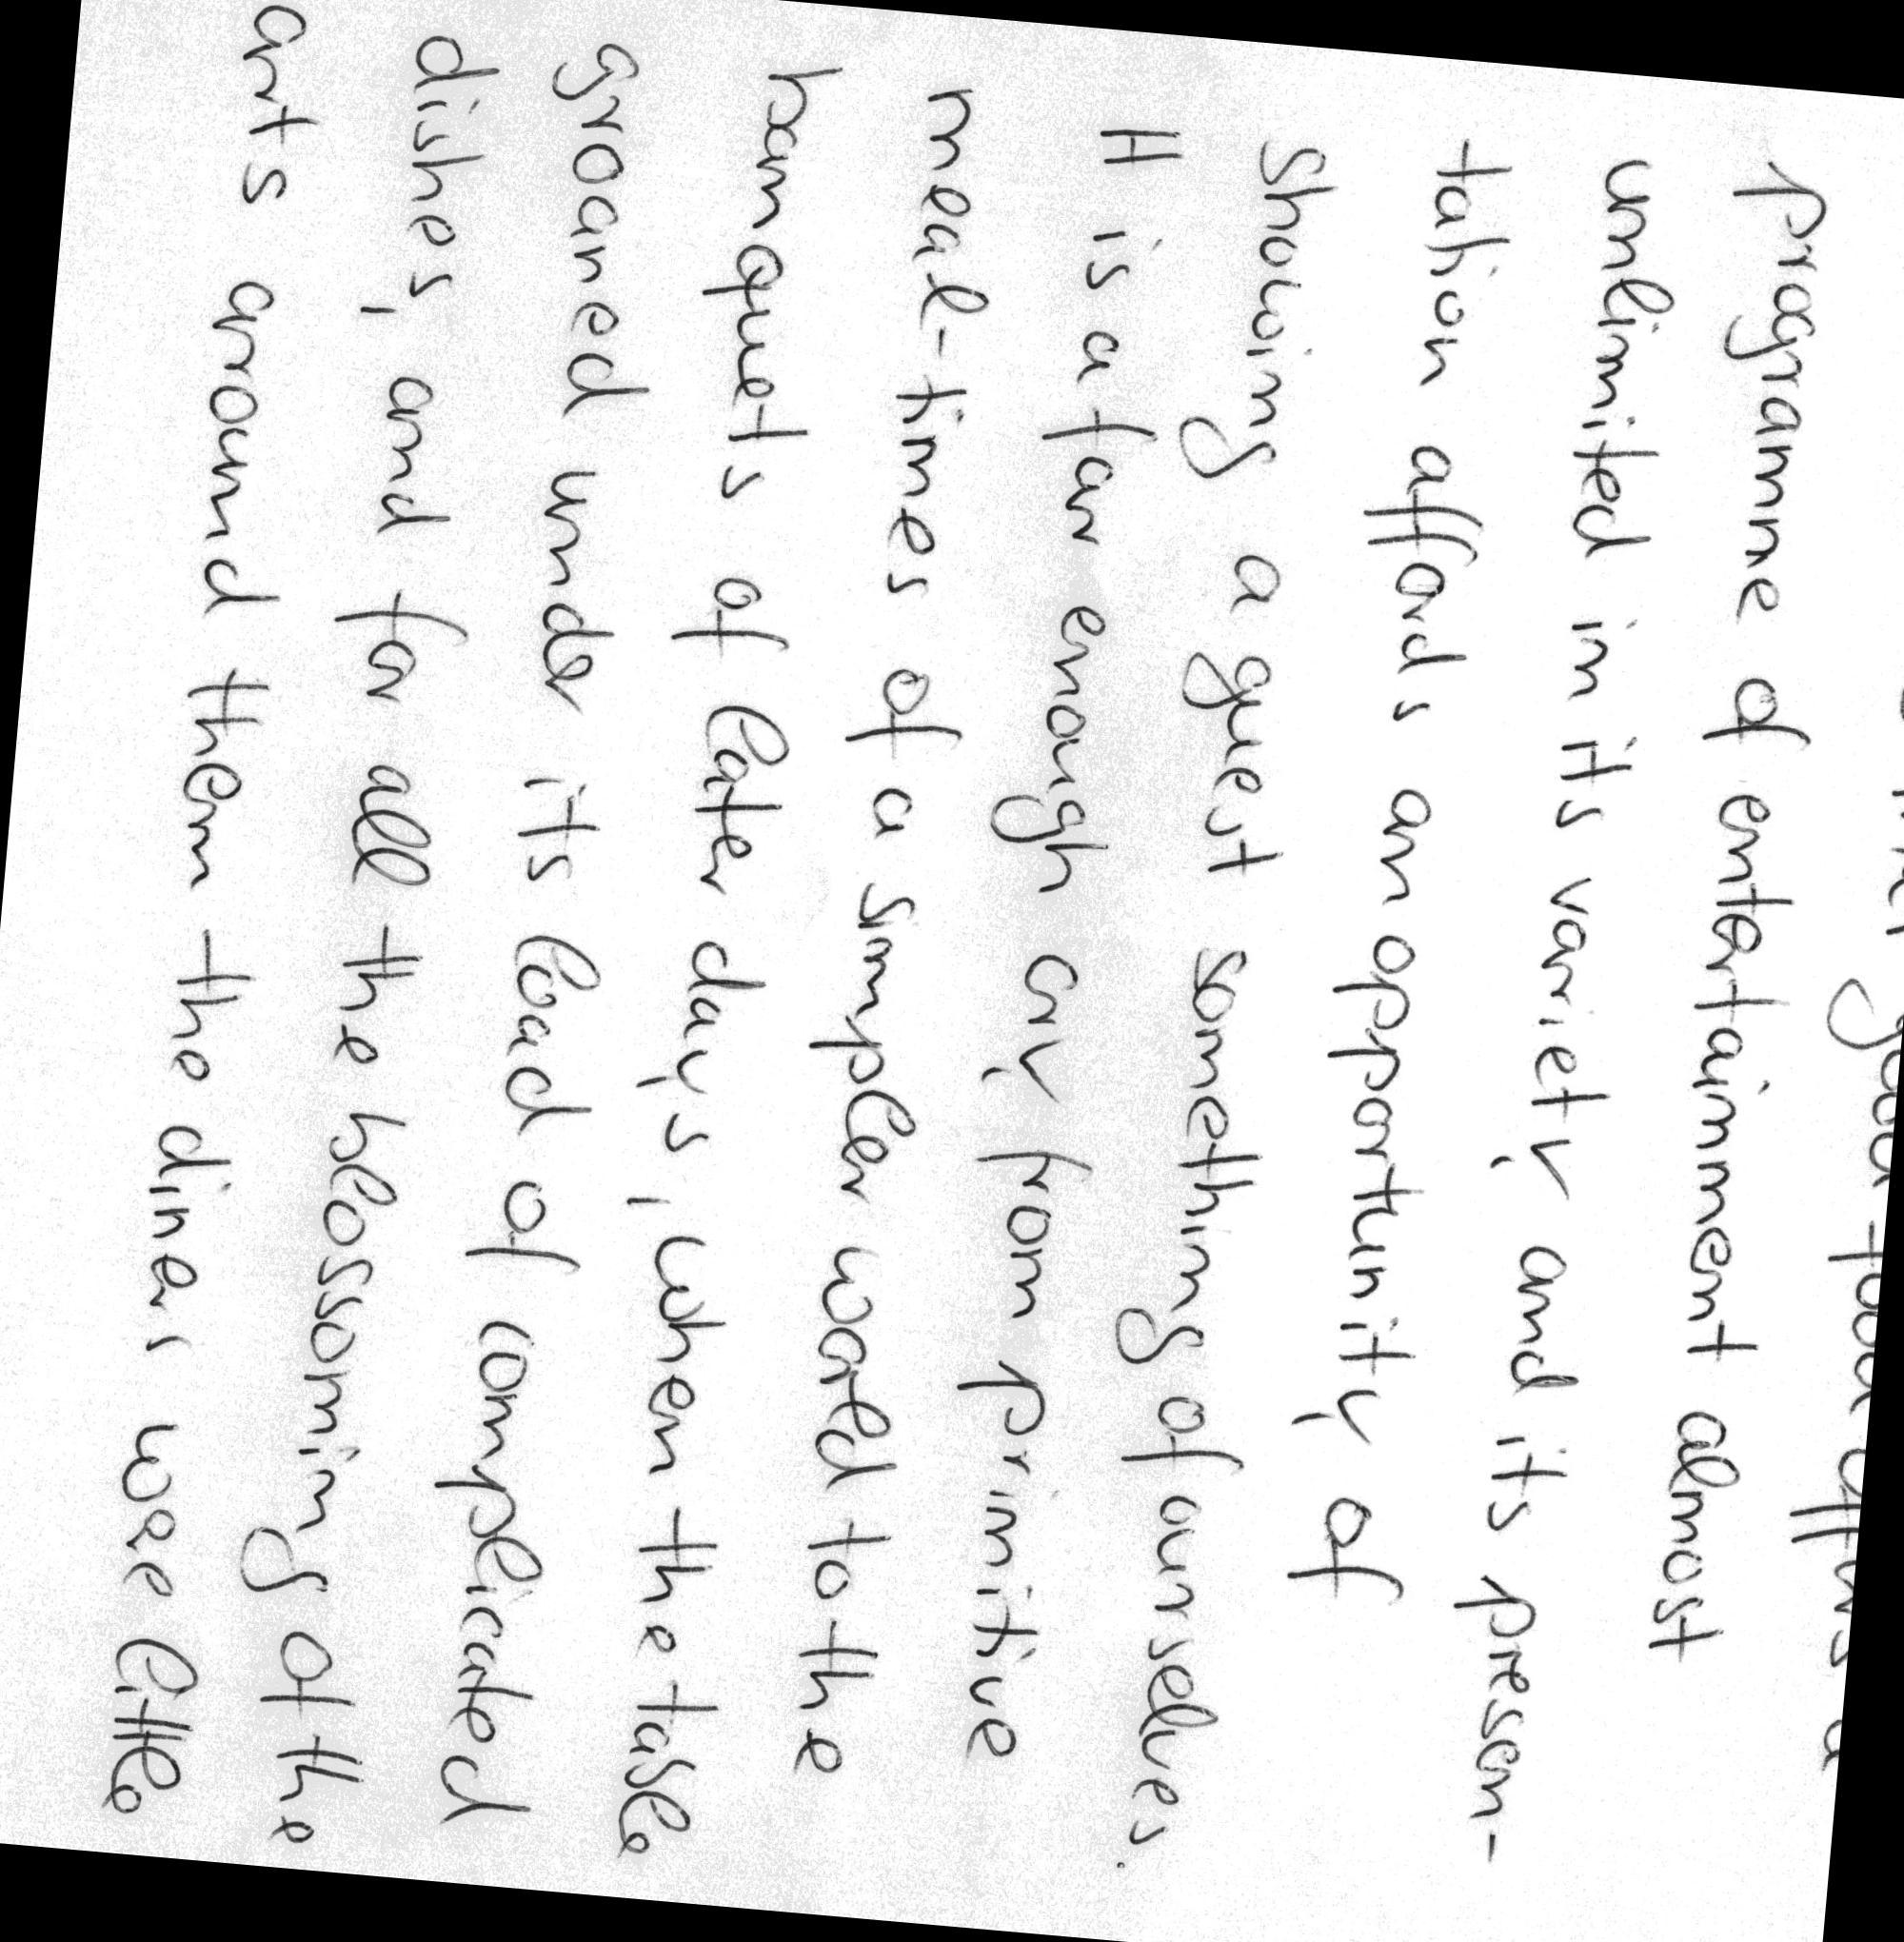 good food affords a
programme of entertainment almost
unlimited in its variety and its presen-
tation affords an opportunity of
showing a guest something of ourselves.
It is a far enough cry from primitive
meal-times of a simpler world to the
banquets of later days, when the table
groaned under its load of complicated
dishes, and for all the blossoming of the
arts around them the diners were little